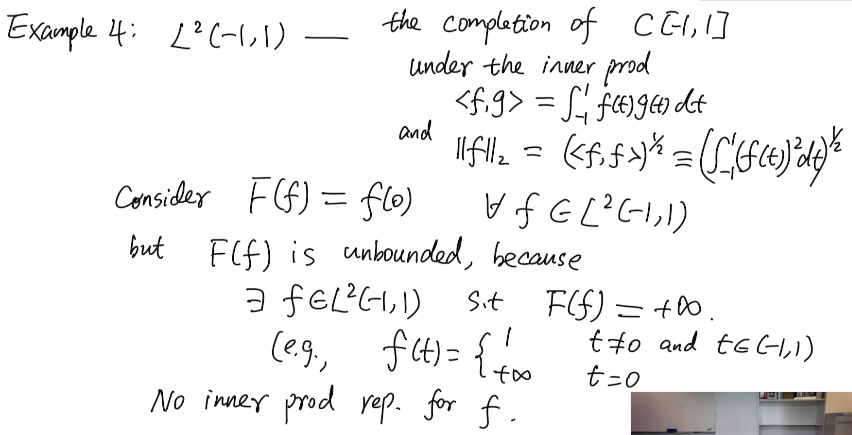 Example 4: L²(-1,1) — the completion of C[-1,1]
under the inner prod
<f,g> = ∫₋₁¹ f(t)g(t) dt
and ‖f‖₂ = (<f,f>)^½ ≡ (∫₋₁¹ (f(t))² dt)^½
Consider F(f) = f(0) ∀ f ∈ L²(-1,1)
but F(f) is unbounded, because
∃ f ∈ L²(-1,1) s.t F(f) = +∞.
(e.g., f(t) = { 1 t≠0 and t∈(-1,1)
+∞ t=0
No inner prod rep. for f.